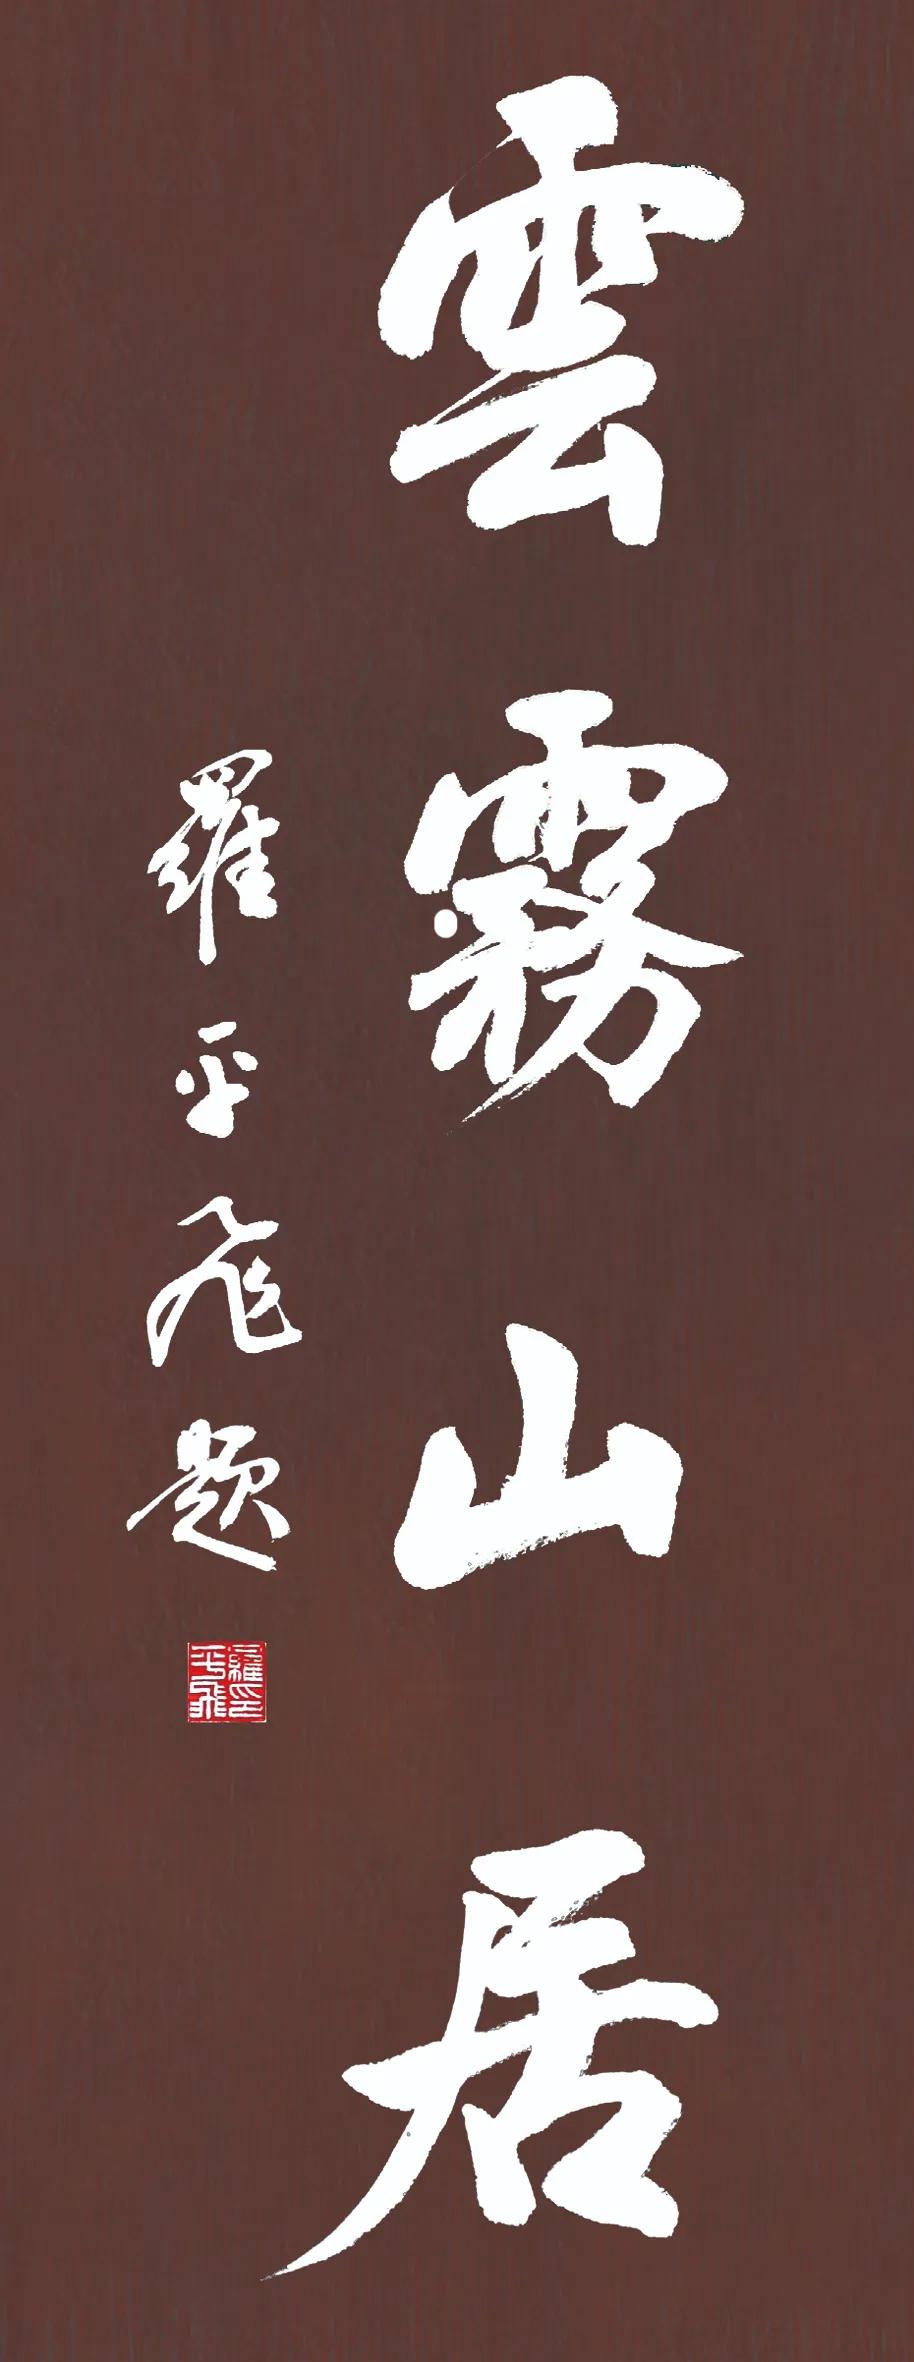 雲霧山居
羅平飛題
羅平飛印